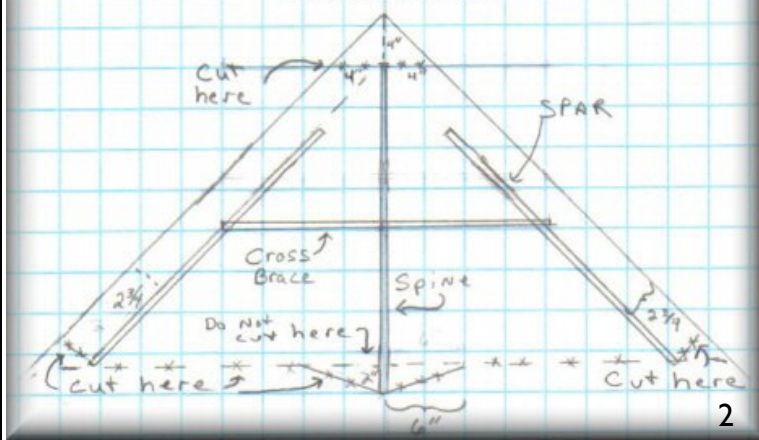 4"
4" 4"
Cut
here
SPAR
Cross
Brace
Spine
2 3/4
2 3/4
Do Not
cut here
2"
cut here
Cut here
6"
2